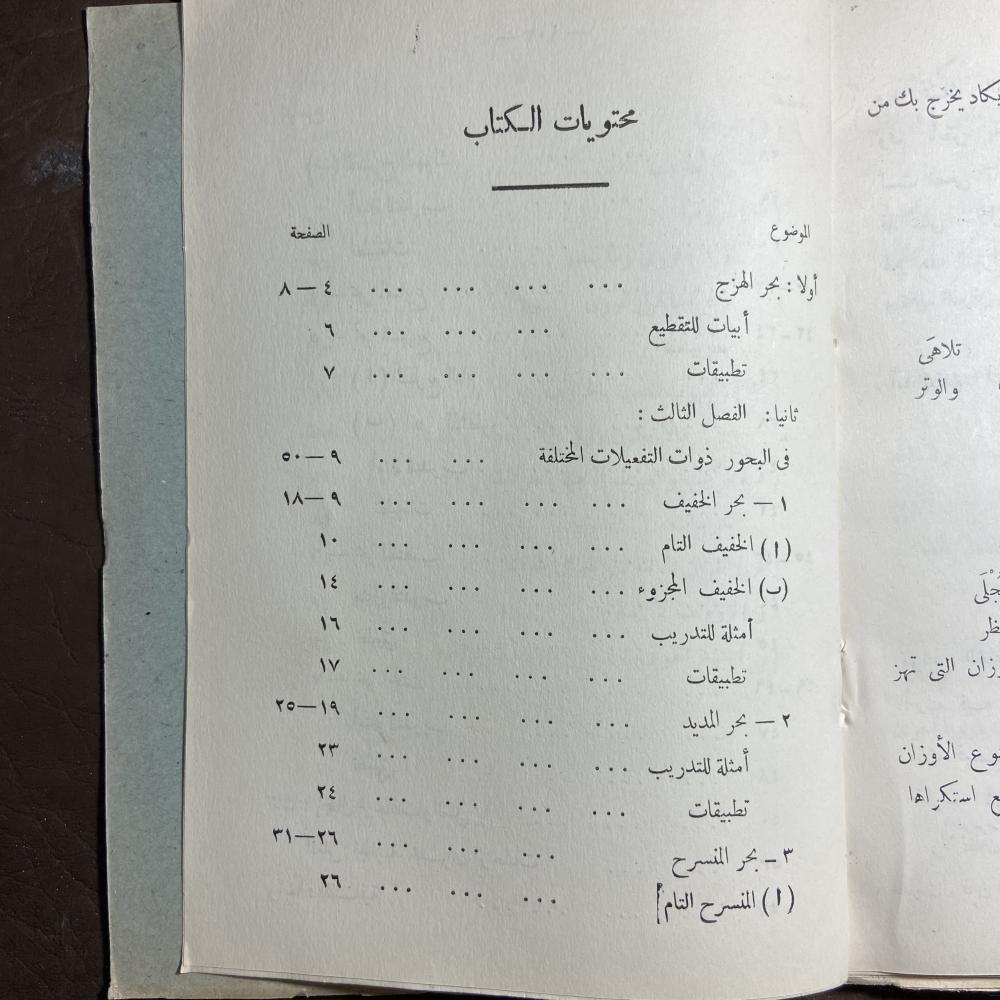 محتويات الكتاب
الموضوع الصفحة
أولا : بحر الهزج ... ... ... ... ٤ — ٨
أبيات للتقطيع ... ... ... ٦
تطبيقات ... ... ... ... ٧
ثانيا : الفصل الثالث :
فى البحور ذوات التفعيلات المختلفة ... ... ٩ — ٥٠
١ — بحر الخفيف ... ... ... ... ٩ — ١٨
(ا) الخفيف التام ... ... ... ... ١٠
(ب) الخفيف المجزوء ... ... ... ... ١٤
أمثلة للتدريب ... ... ... ... ١٦
تطبيقات ... ... ... ... ١٧
٢ — بحر المديد ... ... ... ... ١٩ — ٢٥
أمثلة للتدريب ... ... ... ... ٢٣
تطبيقات ... ... ... ... ٢٤
٣ — بحر المنسرح ... ... ... ٢٦ — ٣١
(ا) المنسرح التام ... ... ... ٢٦
يكاد يخرج بك من
تلاهَى
والوتر
التى تهز
الأوزان
استكراها